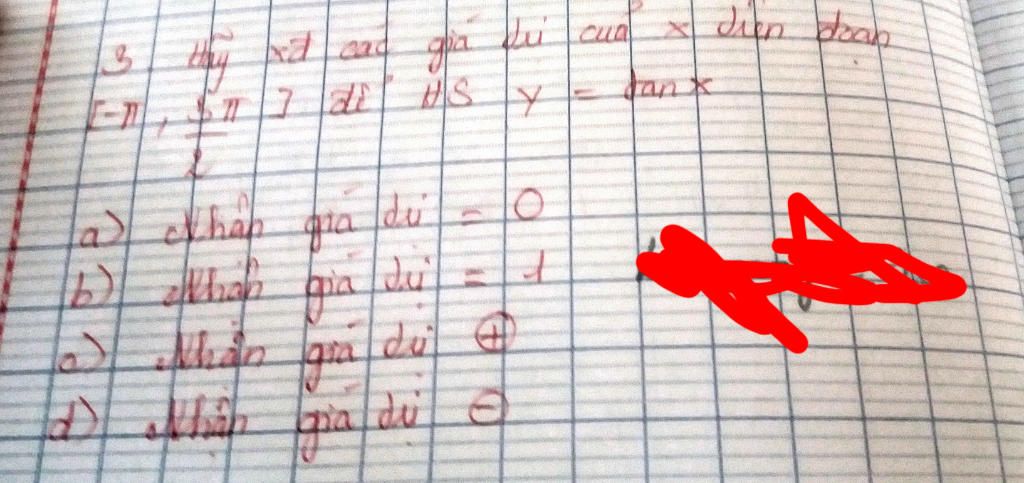 3 Hãy xđ các giá trị của x trên đoạn
[-π, 3π/2] để HS y = tanx
a) Nhận giá trị = 0
b) Nhận giá trị = 1
c) Nhận giá trị ⊕
d) Nhận giá trị ⊖